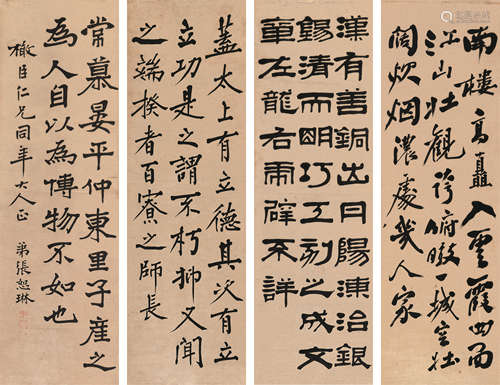 南樓高矗入雲霄四面
江山壯觀兮俯瞰一城
闊炊烟濃處幾人家
漢有善銅出丹陽湅治銀
錫清而明巧工刻之成文
章左龍右虎辟不詳
蓋太上有立德其次有立
立功是之謂不朽抑又聞
之端揆者百寮之師長
常慕晏平仲東里子產之
為人自以為博物不如也
橄臣仁兄同年大人正
弟張恕琳